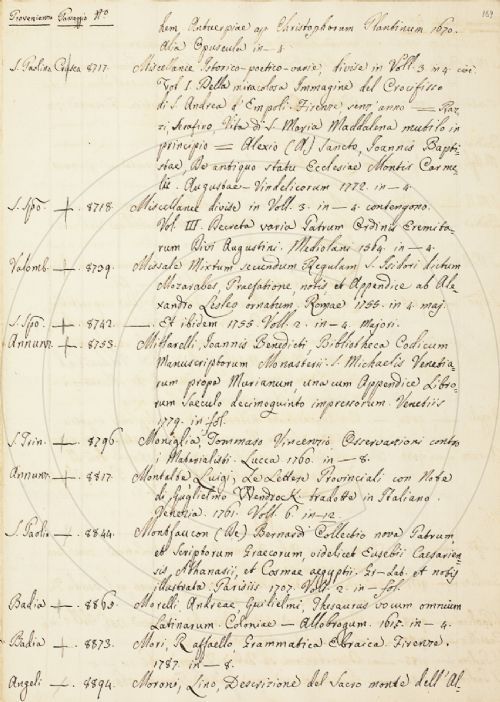 Provenienza Passaggio N.o
169
hem, Antuerpiae ap. Christophorum Plantinum 1670.
Alia Opuscula in - 4
S. Paolino Crusca 8717. Miscellanee Istorico-poetico-varie, divise in Voll. 3. in 4. cioè
Vol. I. Della miracolosa Immagine del Crocifisso
di S. Andrea d'Empoli. Firenze senz'anno = Raz-
zi Serafino, Vita di S. Maria Maddalena mutilo in
principio = Alexio (A) Sancto, Joannis Bapti-
stae, De antiquo statu Ecclesiae Montis Carme-
li. Augustae-Vindelicorum 1772. in - 4.
S. Spo. + . 8718. Miscellanee divise in Voll. 3. in - 4. contengono.
Vol. III. Decreta varia Patrum Ordinis Eremita-
rum Divi Augustini. Mediolani 1584. in - 4.
Valomb. + . 8739. Missale Mixtum secundum Regulam S. Isidori dictum
Mozarabes, Praefatione, notis et Appendice ab Ale-
xandro Lesleo ornatum. Romae 1755. in 4. maj.
S. Spo. + . 8742. —. Et ibidem 1755. Voll. 2. in - 4. majori.
Annunz. + . 8753. Mittarelli, Joannis Benedicti, Bibliotheca Codicum
Manuscriptorum Monasterii S. Michaelis Venetia-
rum prope Murianum, una cum Appendice Libro-
rum Saeculo decimoquinto impressorum. Venetiis
1779. in fol.
S. Trin. + . 8796. Moniglia, Tommaso Vincenzio. Osservazioni contro
i Materialisti. Lucca 1760. in - 8.
Annunz. + . 8817. Montalte Luigi, Le Lettere Provinciali con Note
di Guglielmo Wendrock tradotte in Italiano.
Venezia. 1761. Voll. 6. in - 12.
S. Paolin. + . 8844. Montfaucon (De) Bernardi Collectio nova Patrum,
et Scriptorum Graecorum, videlicet Eusebii Caesarien-
sis, Athanasii, et Cosmae aegyptii. Gr-Lat. et notis
illustrata. Parisiis 1707. Voll. 2. in - fol.
Badia + . 8865. Morelli, Andreae, Guilielmi, Thesaurus vocum omnium
Latinarum. Coloniae - Allobrogum. 1615. in - 4.
Badia + . 8873. Mori, Raffaello, Grammatica Ebraica. Firenze.
1787. in - 8.
Angeli + . 8894. Moroni, Lino, Descrizione del Sacro monte dell'Al-